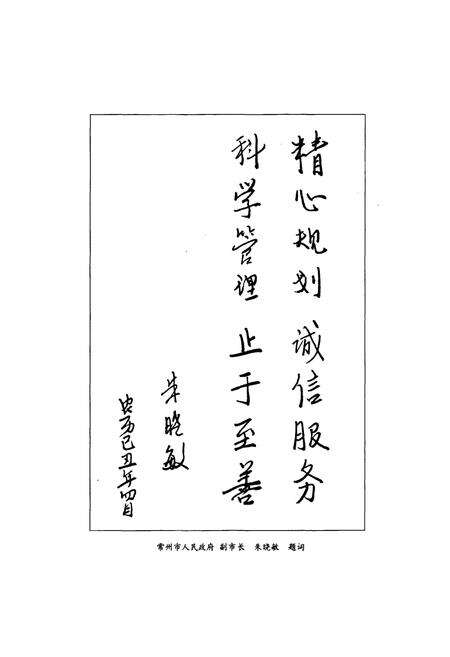 精心规划 诚信服务
科学管理 止于至善
朱晓敏
农历己丑年四月
常州市人民政府 副市长 朱晓敏 题词